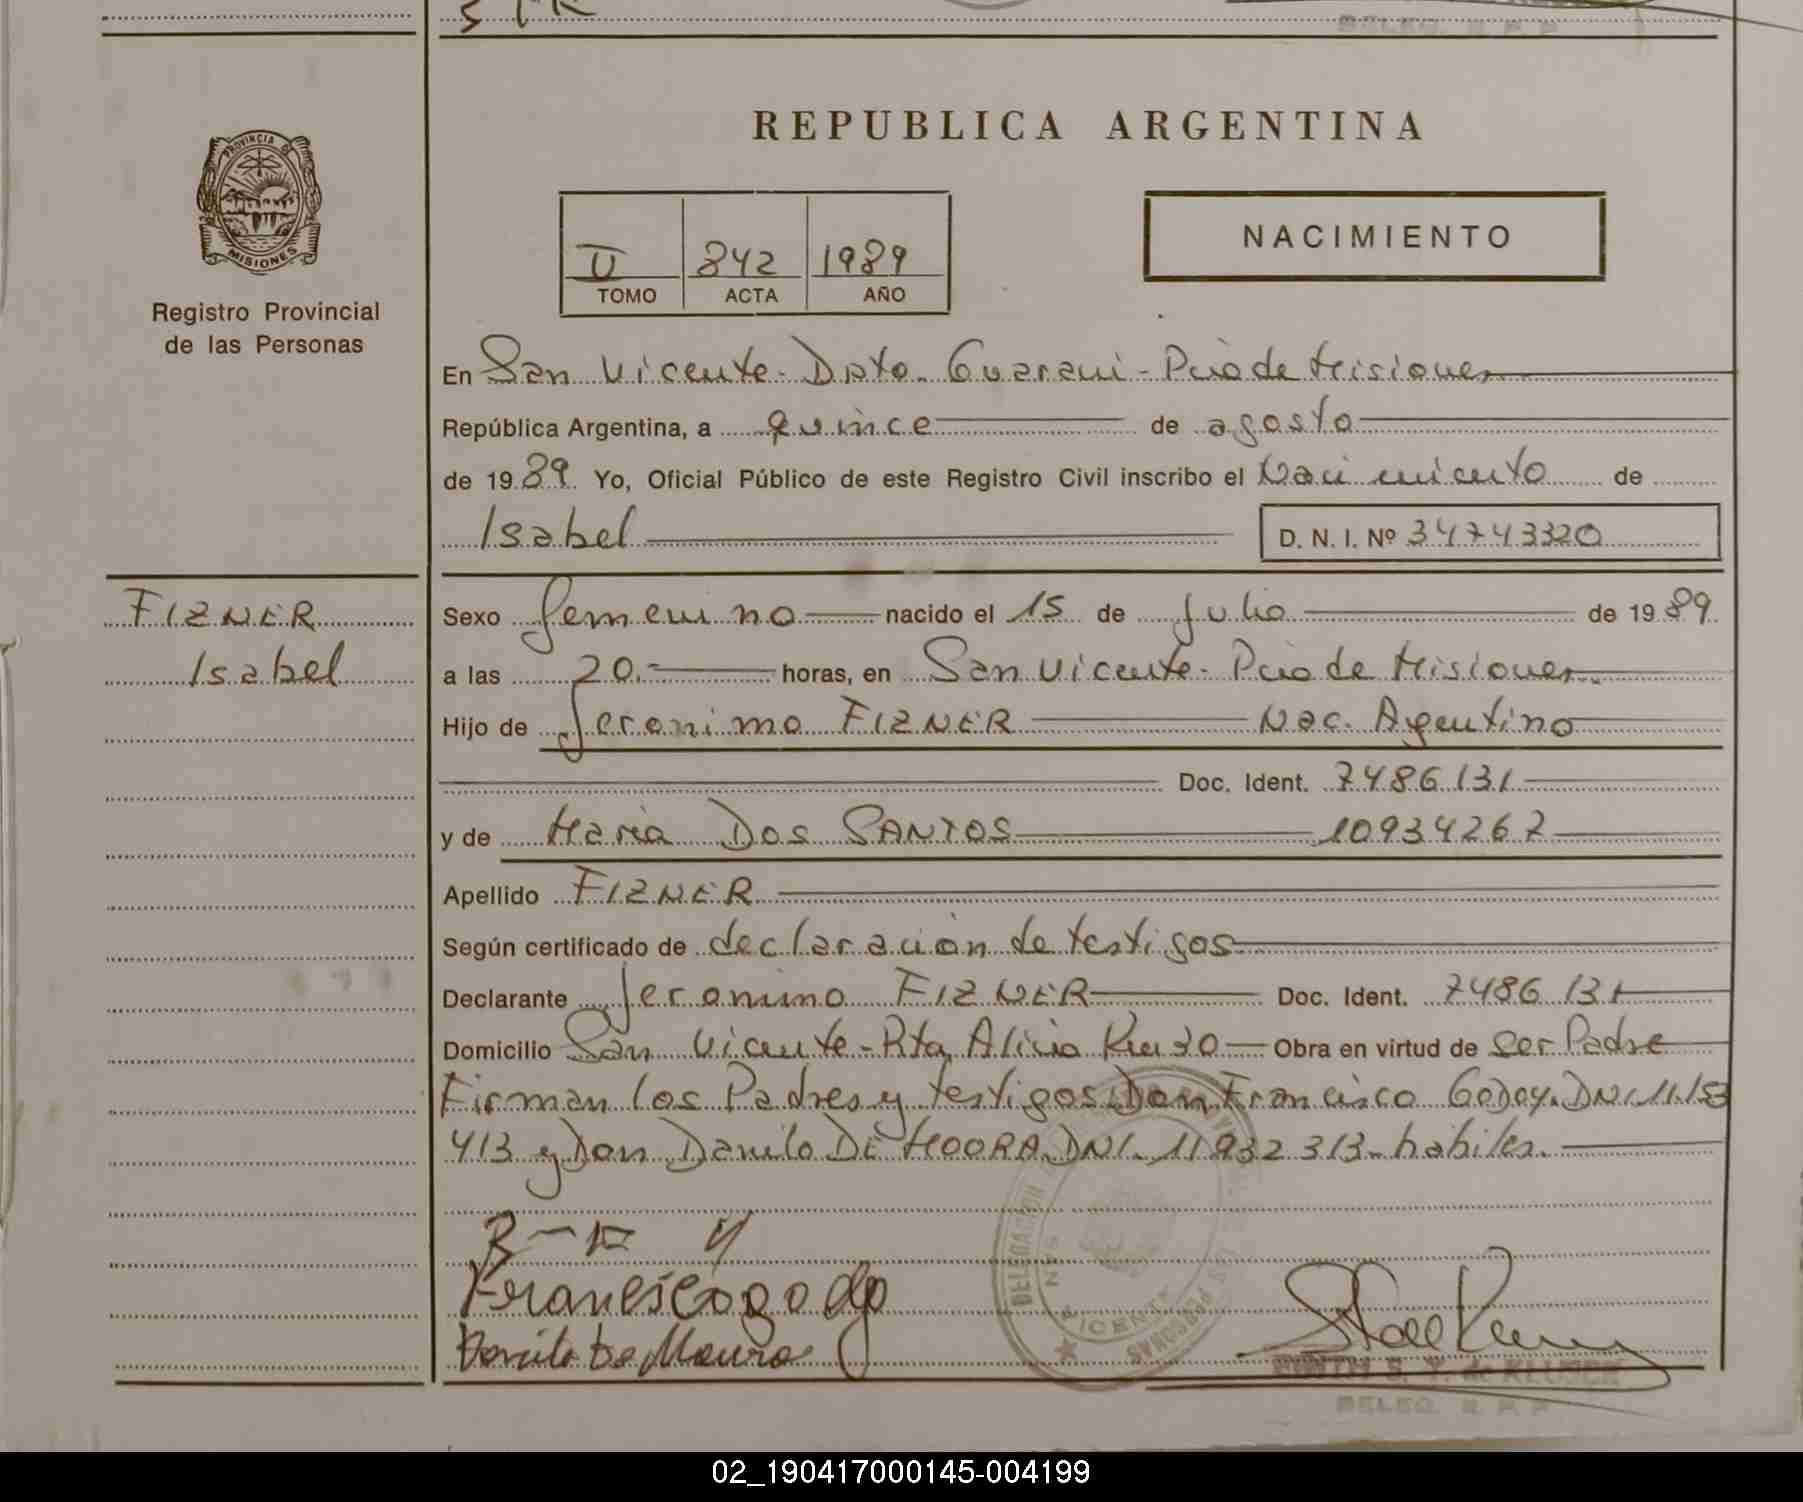 REPUBLICA ARGENTINA
PROVINCIA DE
MISIONES
Registro Provincial
de las Personas
II 842 1989
TOMO ACTA AÑO
NACIMIENTO
En San Vicente - Dpto. Guarani - Pcia de Misiones
República Argentina, a quince de agosto
de 1989 Yo, Oficial Público de este Registro Civil inscribo el Nacimiento de
Isabel D. N. I. Nº 34743320
FIZNER
Isabel
Sexo femenino nacido el 15 de Julio de 1989
a las 20.- horas, en San Vicente - Pcia de Misiones
Hijo de Jeronimo FIZNER Nac. Argentino
Doc. Ident. 7486131
y de Maria DOS SANTOS 10934267
Apellido FIZNER
Según certificado de declaración de testigos
Declarante Jeronimo FIZNER Doc. Ident. 7486131
Domicilio San Vicente - Obra en virtud de ser Padre
Firman los Padres y testigos Don Francisco Godoy. DNI. 11.153
413 y Don Danilo DE MOORA. DNI. 11932313 - habiles.
DELEGACION
SAN VICENTE
PERSONAS
de KLUSCK
DELEG. R. P. P.
02_190417000145-004199